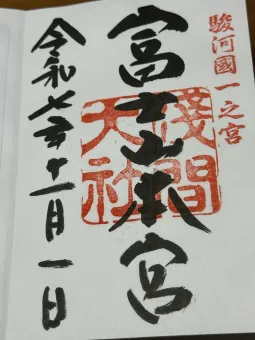 駿河國一之宮
富士山本宮
淺間大社
令和七年十一月一日